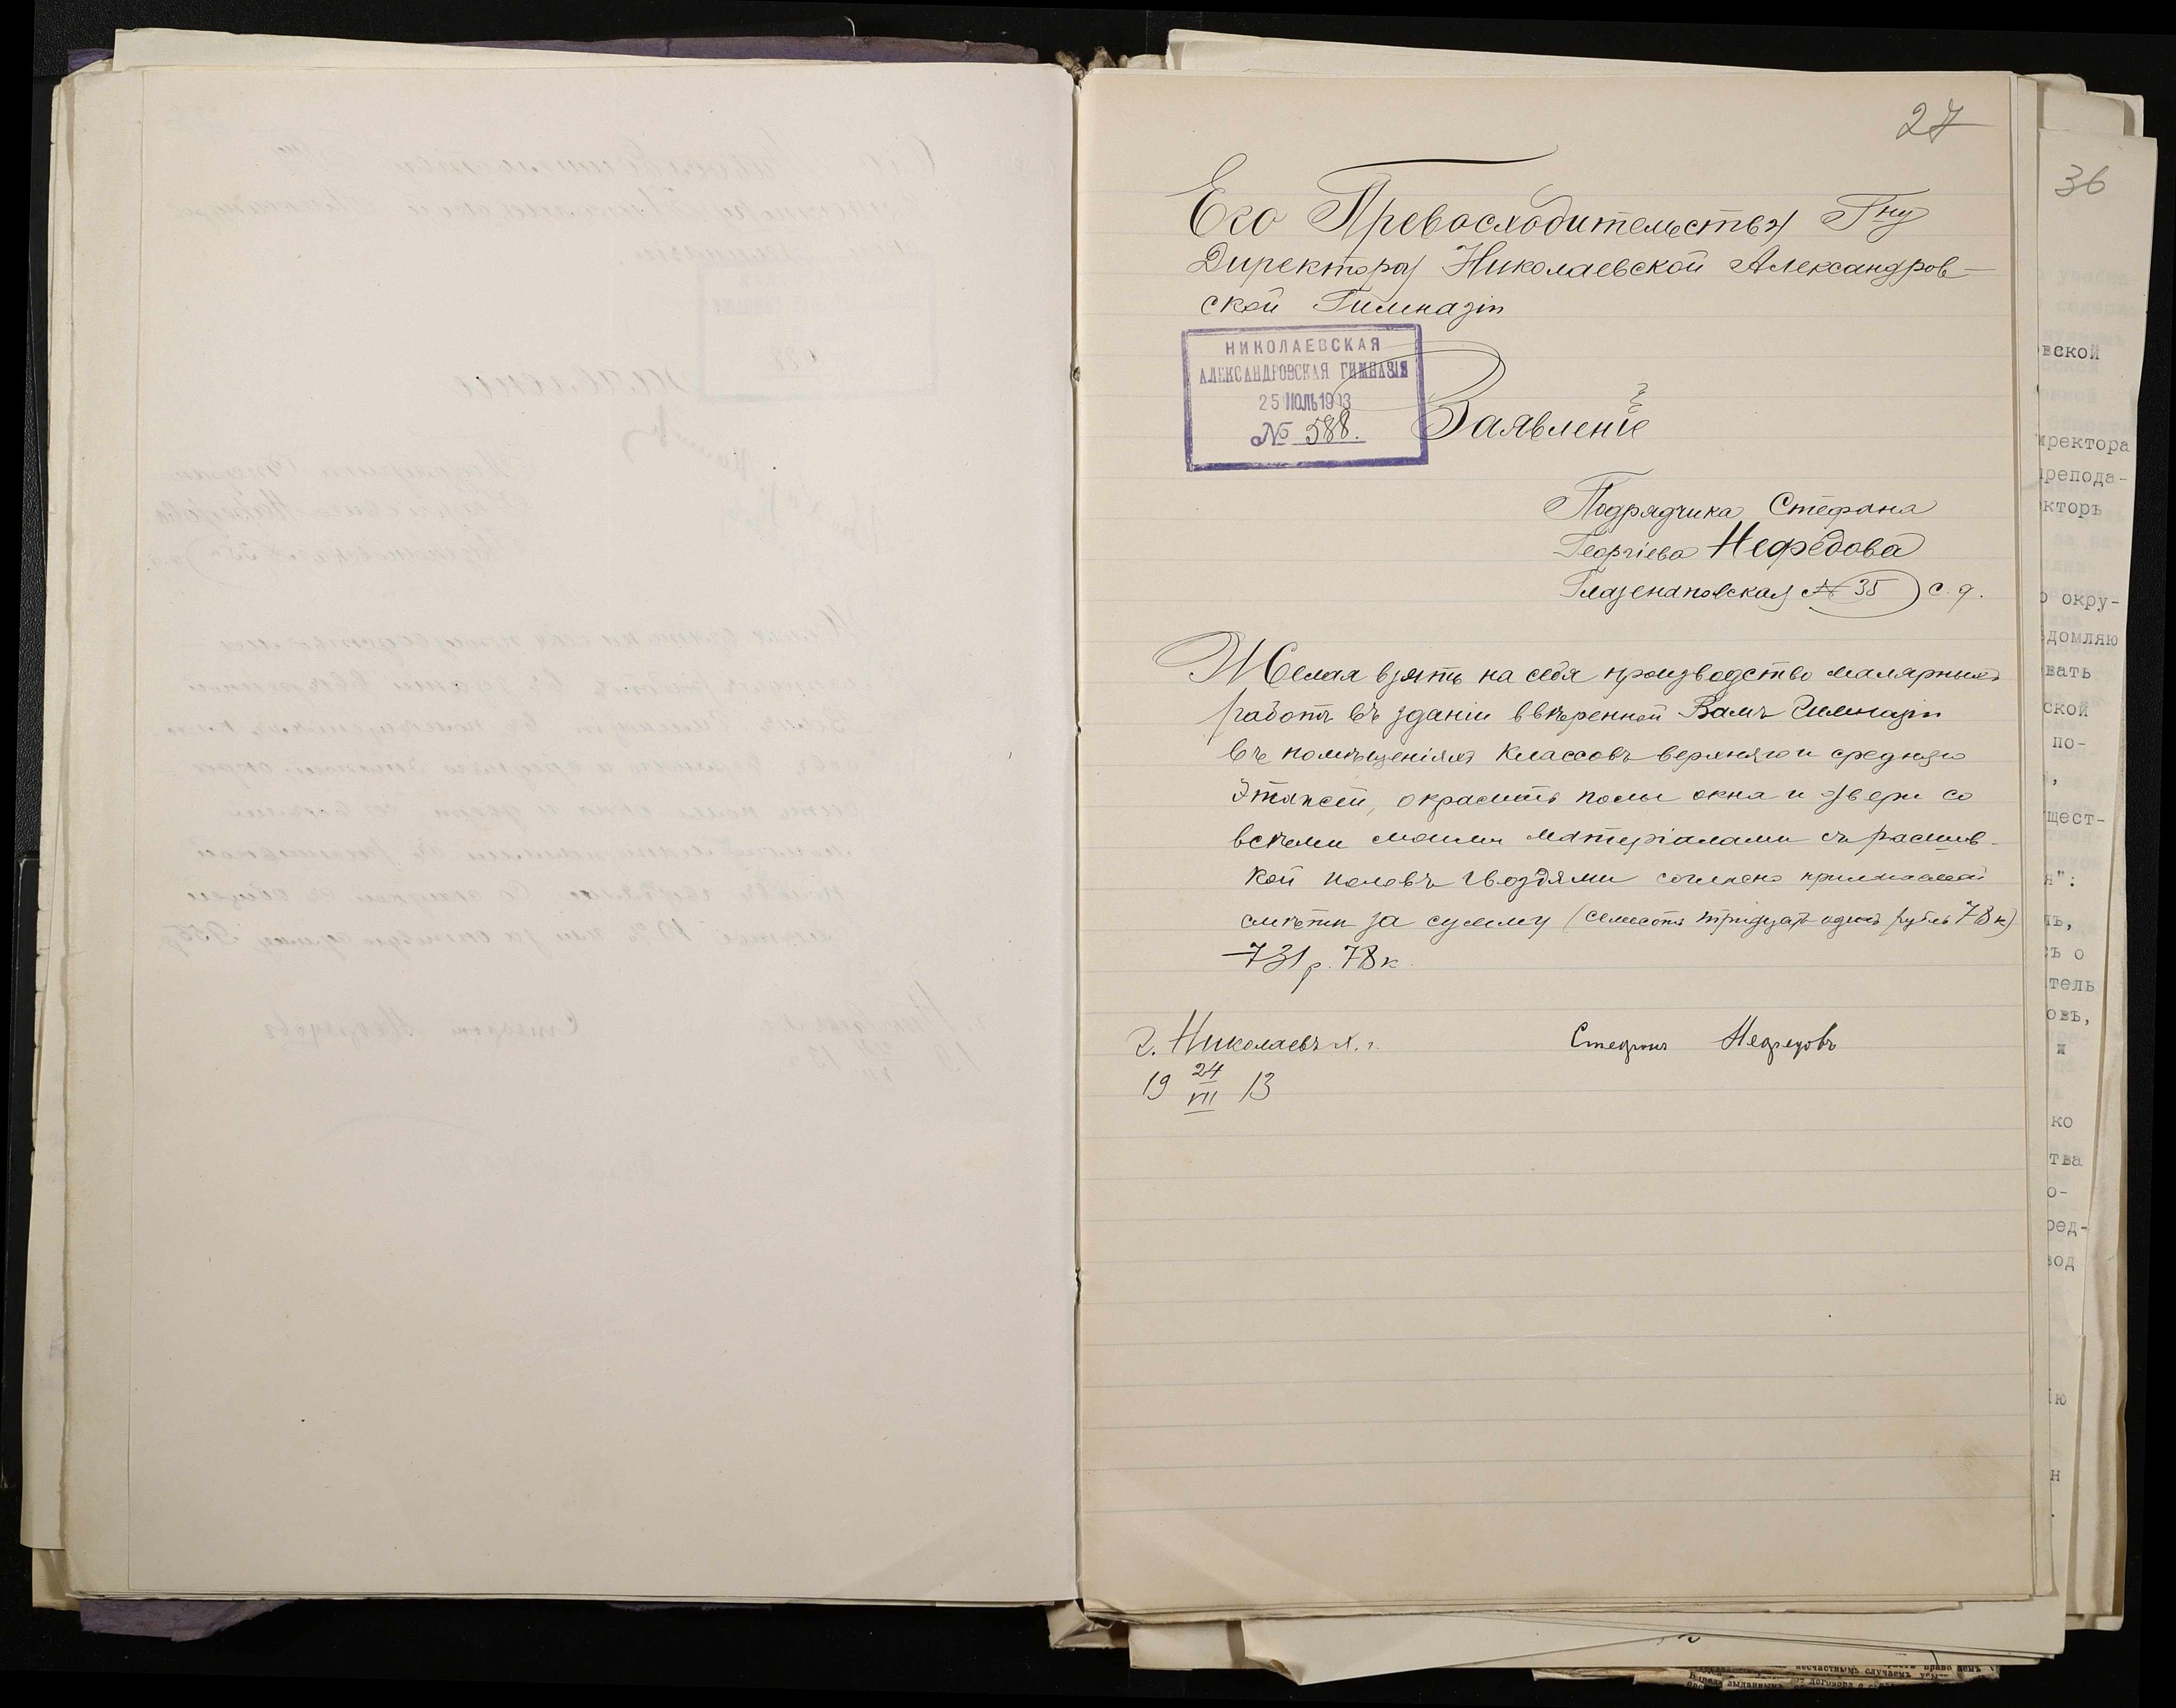 27
36
Его Превосходительству Гну
Директору Николаевской Александров-
ской Гимназіи
НИКОЛАЕВСКАЯ
АЛЕКСАНДРОВСКАЯ ГИМНАЗІЯ
25 ІЮЛЬ 1913
№ 588.
Заявленіе
Подрядчика Стефана
Георгіева Нефедова
Глазенаповская № 35 с. д.
Желая взять на себя производство малярныхъ
работъ въ зданіи ввѣренной Вамъ Гимназіи
въ помѣщеніяхъ классовъ верхняго и средняго
Этажей, окрасить полы окна и двери со
всѣми моими матеріалами съ расшив-
кой половъ гвоздями согласно прилагаемой
смѣты за сумму (семьсотъ тридцать одинъ рубль 78 к)
731 р. 78 к.
г. Николаевъ х. г.
Стефанъ Нефедовъ
19 24/VII 13
вской
иректора
препода-
кторъ
о окру-
домляю
вать
ской
по-
щест-
ъ о
тель
овъ,
и
ко
тва
о-
ред-
вод
ію
н